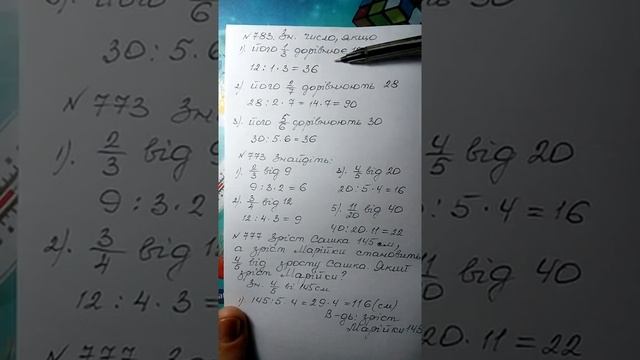 N 783. Зн. число, якщо
1). його 1/3 дорівнює
12 : 1 · 3 = 36
2) його 2/7 дорівнюють 28
28 : 2 · 7 = 14 · 7 = 90
3). його 5/6 дорівнюють 30
30 : 5 · 6 = 36
N 773 Знайдіть:
1). 2/3 від 9
9 : 3 · 2 = 6
2). 3/4 від 12
12 : 4 · 3 = 9
3). 4/5 від 20
20 : 5 · 4 = 16
5). 11/20 від 40
40 : 20 · 11 = 22
N 777 Зріст Сашка 145 см,
а зріст Марійки становить
4/5 від зросту Сашка Який
зріст Марійки?
Зн. 4/5 ві 145 см
1) 145 : 5 · 4 = 29 · 4 = 116 (см)
В-дь: зріст
Марійки 145
30 : 5 · 6
N 773
1). 2/3 від 9
9 : 3 · 2
2). 3/4 від
12 : 4 · 3
N 777
4/5 від 20
: 5 · 4 = 16
11/20 від 40
20 · 11 = 22